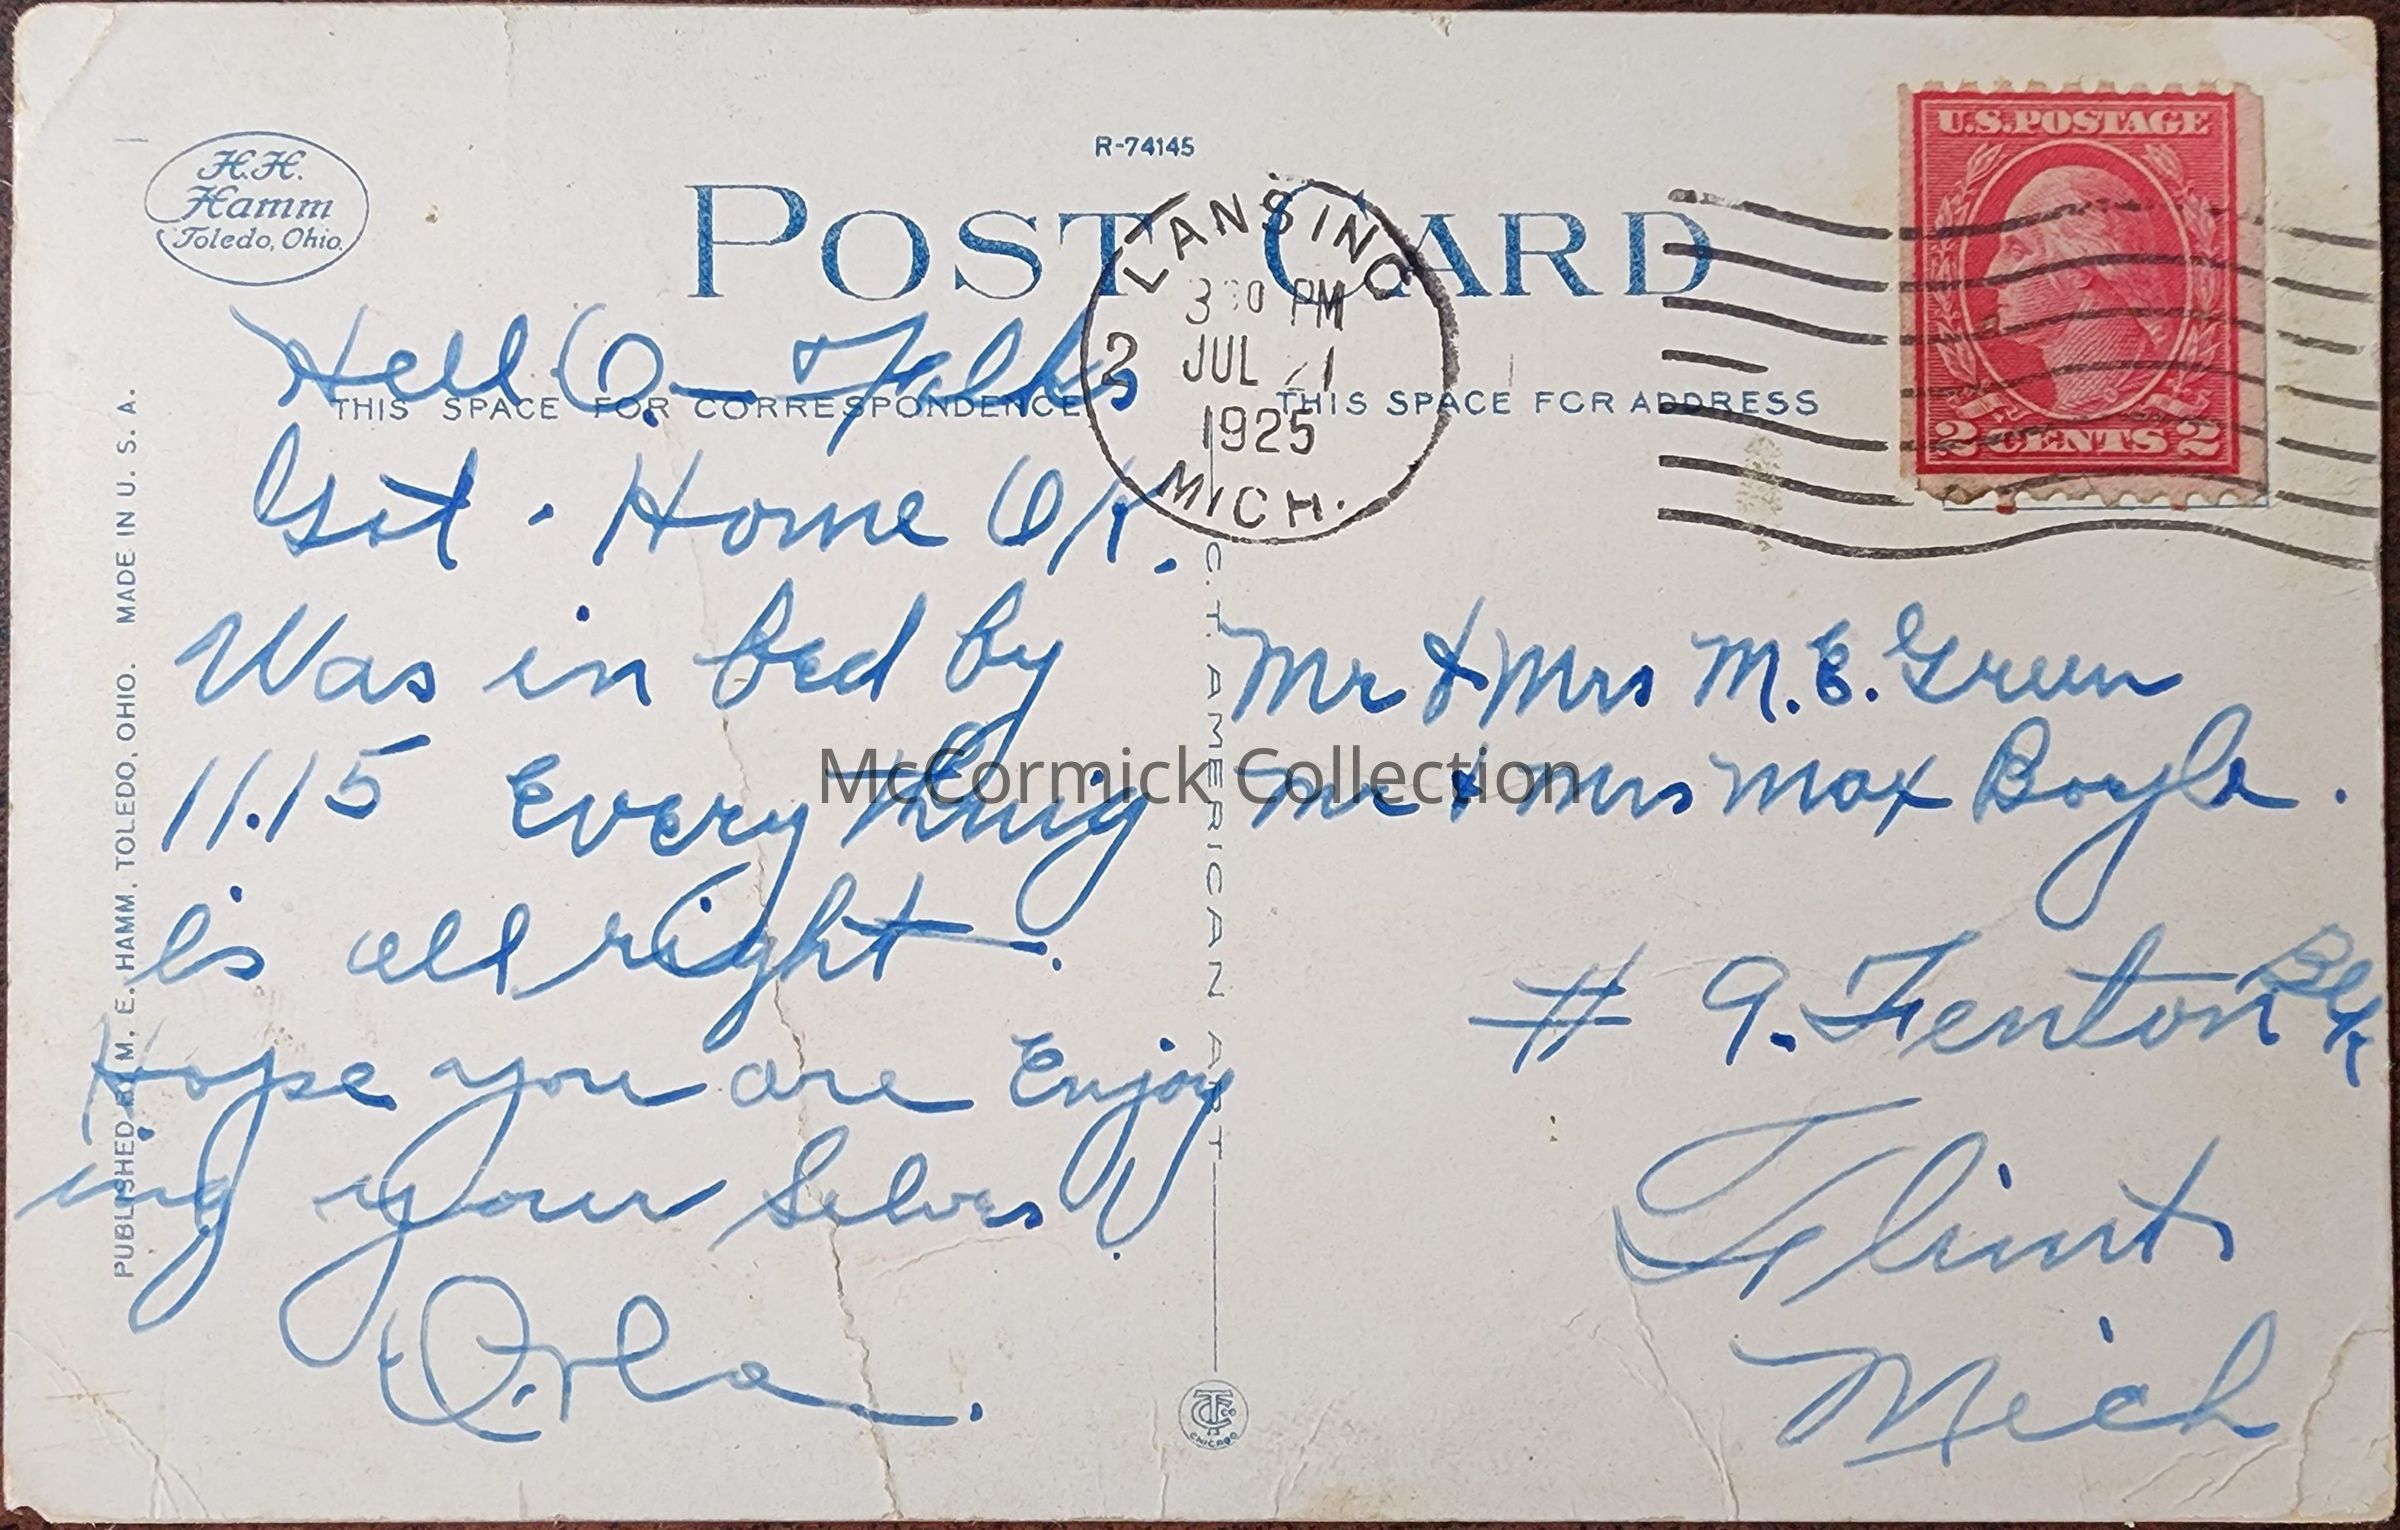 H.H.
Hamm
Toledo, Ohio.
R-74145
POST CARD
U.S. POSTAGE
2 CENTS 2
LANSING
PM
2 JUL 21
1925
MICH.
THIS SPACE FOR CORRESPONDENCE
THIS SPACE FOR ADDRESS
Hell.O.- Folks
Got. Home OK.
Was in bed by
11.15 Everything
is all right.
Hope you are Enjoy
ing your Selves.
Orla.
Mr & Mrs M.E. Green
Mr & Mrs Max Boyle.
# 9. Fenton Blk
Flint
Mich
PUBLISHED BY M. E. HAMM, TOLEDO, OHIO. MADE IN U. S. A.
C. T. AMERICAN ART
CHICAGO
McCormick Collection